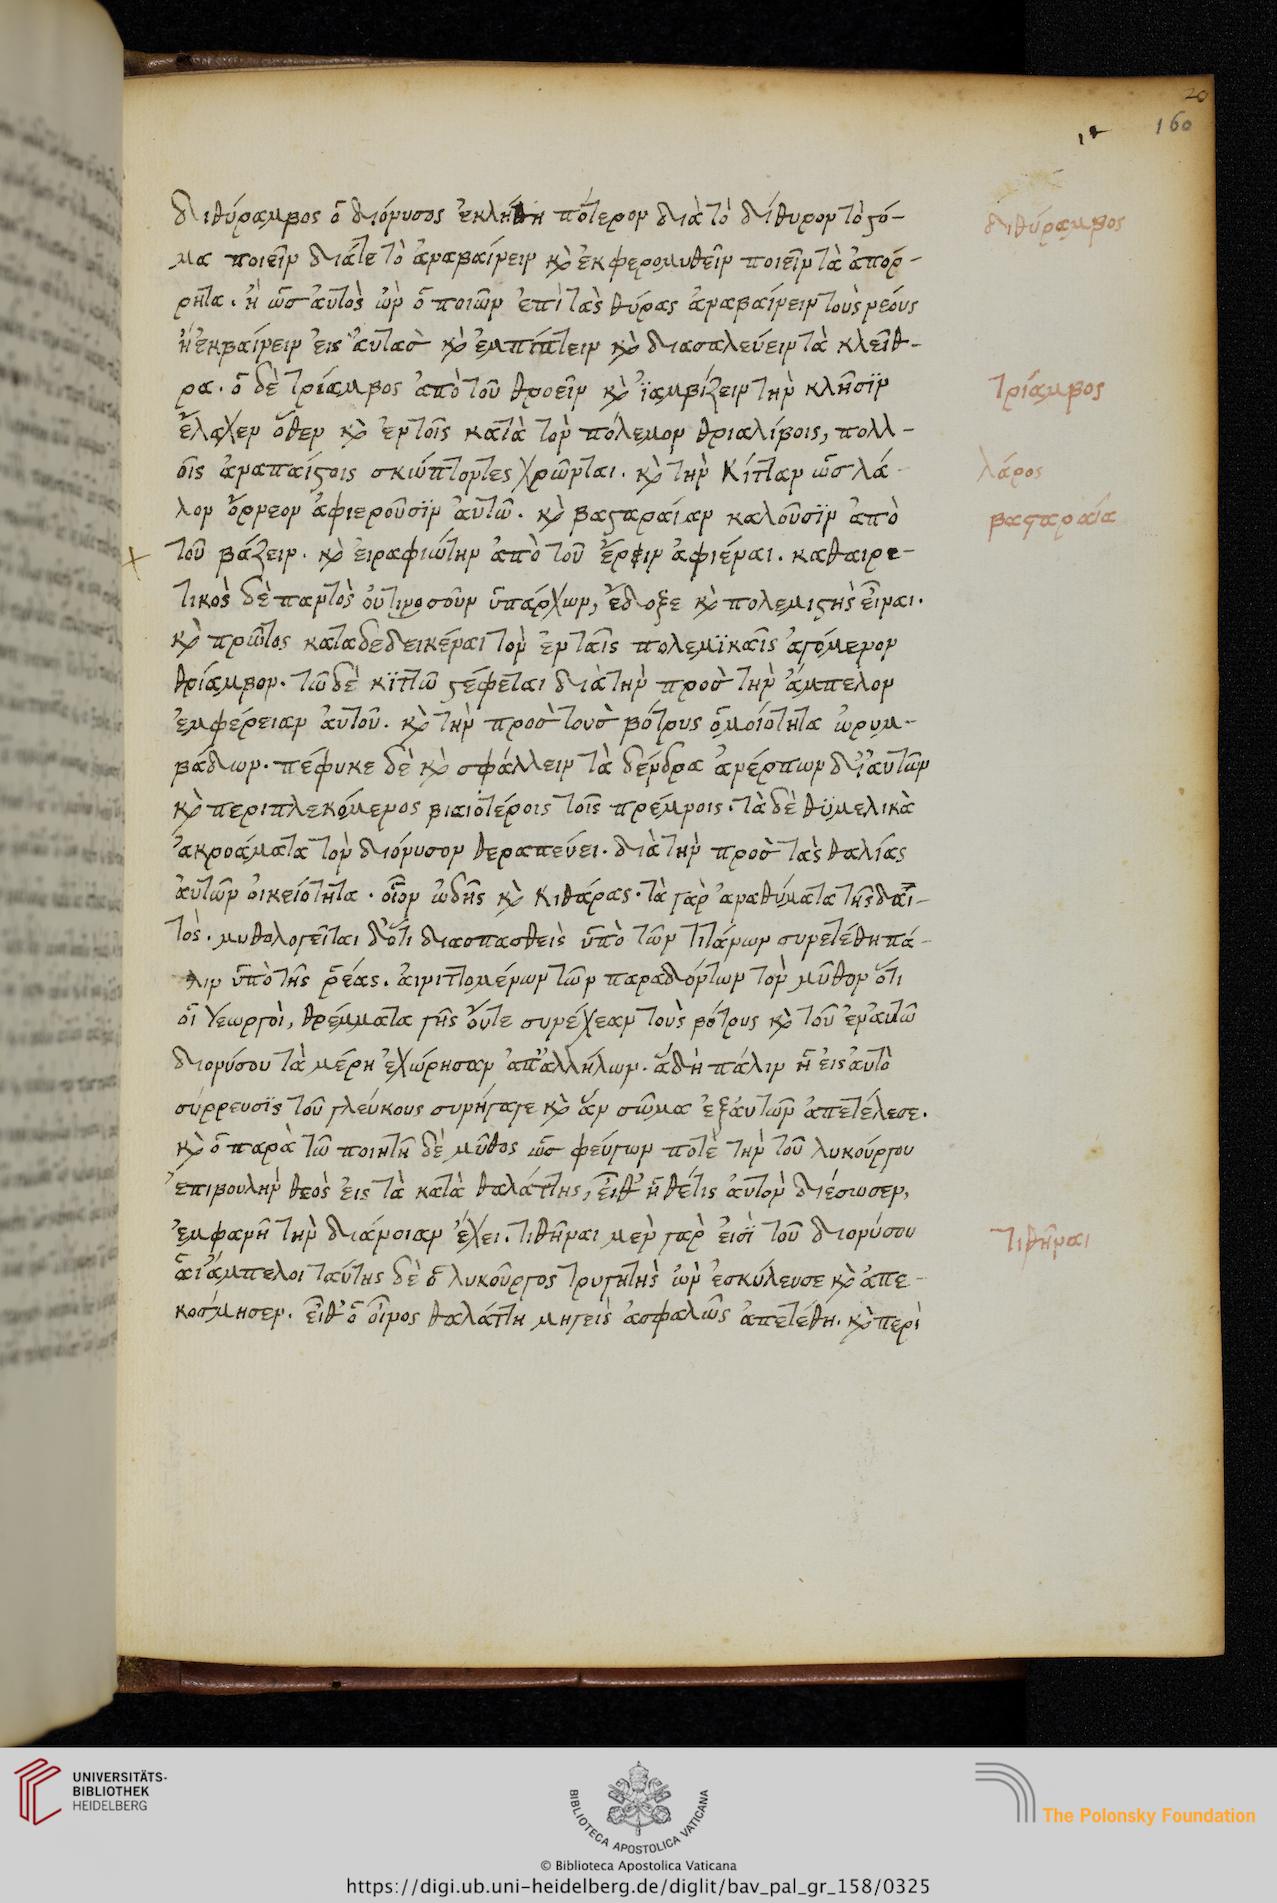 20
160
διθύραμβος ὁ διόνυσος ἐκλήθη πότερον διὰ τὸ δίθυρον τὸ στό-
διθύραμβος
μα ποιεῖν διάτε τὸ ἀναβαίνειν κỳ ἐκφερομυθεῖν ποιεῖν τὰ ἀπόρ-
ρητα. ἢ ὡσ αὐτὸς ὢν ὁ ποιῶν ἐπὶ τὰς θύρας ἀναβαίνειν τοὺς νέους
ἢ ἐκβαίνειν εἰς αὐτὰσ κỳ ἐμπίπτειν κỳ διασαλεύειν τὰ κλεῖθ-
ρα. ὁ δὲ τρίαμβος ἀπὸ τοῦ θροεῖν κỳ ἰαμβίζειν τὴν κλῆσϊν
τρίαμβος
ἔλαχεν ὅθεν κỳ ἐν τοῖς κατὰ τὸν πόλεμον θριαλίβοις, πολλ-
οῖς ἀναπαίστοις σκώπτοντες χρῶνται. κỳ τὴν κίτταν ὡσ λά-
λάρος
λον ὄρνεον ἀφιεροῦσϊν αὐτῶ. κỳ βασταραίαν καλοῦσϊν ἀπὸ
βασταραία
τοῦ βάζειν. κỳ εἰραφιώτην ἀπὸ τοῦ ἔρειν ἀφιέναι. καθαιρε-
τικὸς δὲ παντὸς οὑτινοσοῦν ὑπάρχων, ἔδοξε κỳ πολεμιστὴς εἶναι.
κỳ πρῶτος καταδεδεικέναι τὸν ἐν ταῖς πολεμϊκαῖς ἀγόμενον
θρίαμβον. τῶ δὲ κϊττῶ στέφεται διὰ τὴν προσ τὴν ἄμπελον
ἐμφέρειαν αὐτοῦ. κỳ τὴν προσ τουσ βότρυς ὁμοιότητα ὠρυμ-
βάδων. πέφυκε δὲ κỳ σφάλλειν τὰ δένδρα ἀνέρπων δι' αὐτῶν
κỳ περιπλεκόμενος βιαιοτέροις τοῖς πρέμνοις. τὰ δὲ θϋμελικὰ
ἀκροάματα τὸν διόνυσον θεραπεύει. διὰ τὴν προσ τὰς θαλίας
αὐτῶν οἰκειότητα. οἷον ὠδῆς κỳ κιθάρας. τὰ γὰρ ἀναθύματα τῆς δαι-
τός. μυθολογεῖται δ' ὅτι διασπασθεὶς ὑπὸ τῶν τιτάνων συνετέθη πά-
λιν ὑπὸ τῆς ῥέας. αἰνιττομένων τῶν παραδόντων τὸν μῦθον ὅτι
οἱ γεωργοὶ, θρέμματα γῆς ὄυτε συνέχεαν τοὺς βότρυς κỳ τοῦ ἐν αυτῶ
διονύσου τὰ μέρη ἐχώρησαν ἀπ' ἀλλήλων. ἃ δὴ πάλιν ἡ εἰς αυτὸ
σύρρευσϊς τοῦ γλεύκους συνήγαγε κỳ ἂν σῶμα ἐξ αυτῶν ἀπετέλεσε.
κỳ ὁ παρὰ τῶ ποιητῆ δὲ μῦθος ὡσ φεύγων ποτὲ τὴν τοῦ λυκούργου
ἐπιβουλὴν θεὸς εἰς τὰ κατὰ θαλάττης, εἶθ' ἡ θέτις αὐτὸν διέσωσεν,
ἐμφανῆ τὴν διάνοιαν ἔχει. τιθῆναι μὲν γὰρ εἰσϊ τοῦ διονύσου
τιθῆναι
αἱ ἄμπελοι ταύτης δὲ ὁ λυκοῦργος τρυγητὴς ὢν ἐσκύλευσε κỳ ἀπε-
κόσμησεν. εἶθ' ὁ οἶνος θαλάττη μιγεὶς ἀσφαλῶς ἀπετέθη. κỳ περὶ
UNIVERSITÄTS-
BIBLIOTHEK
HEIDELBERG
BIBLIOTECA APOSTOLICA VATICANA
The Polonsky Foundation
© Biblioteca Apostolica Vaticana
https://digi.ub.uni-heidelberg.de/diglit/bav_pal_gr_158/0325